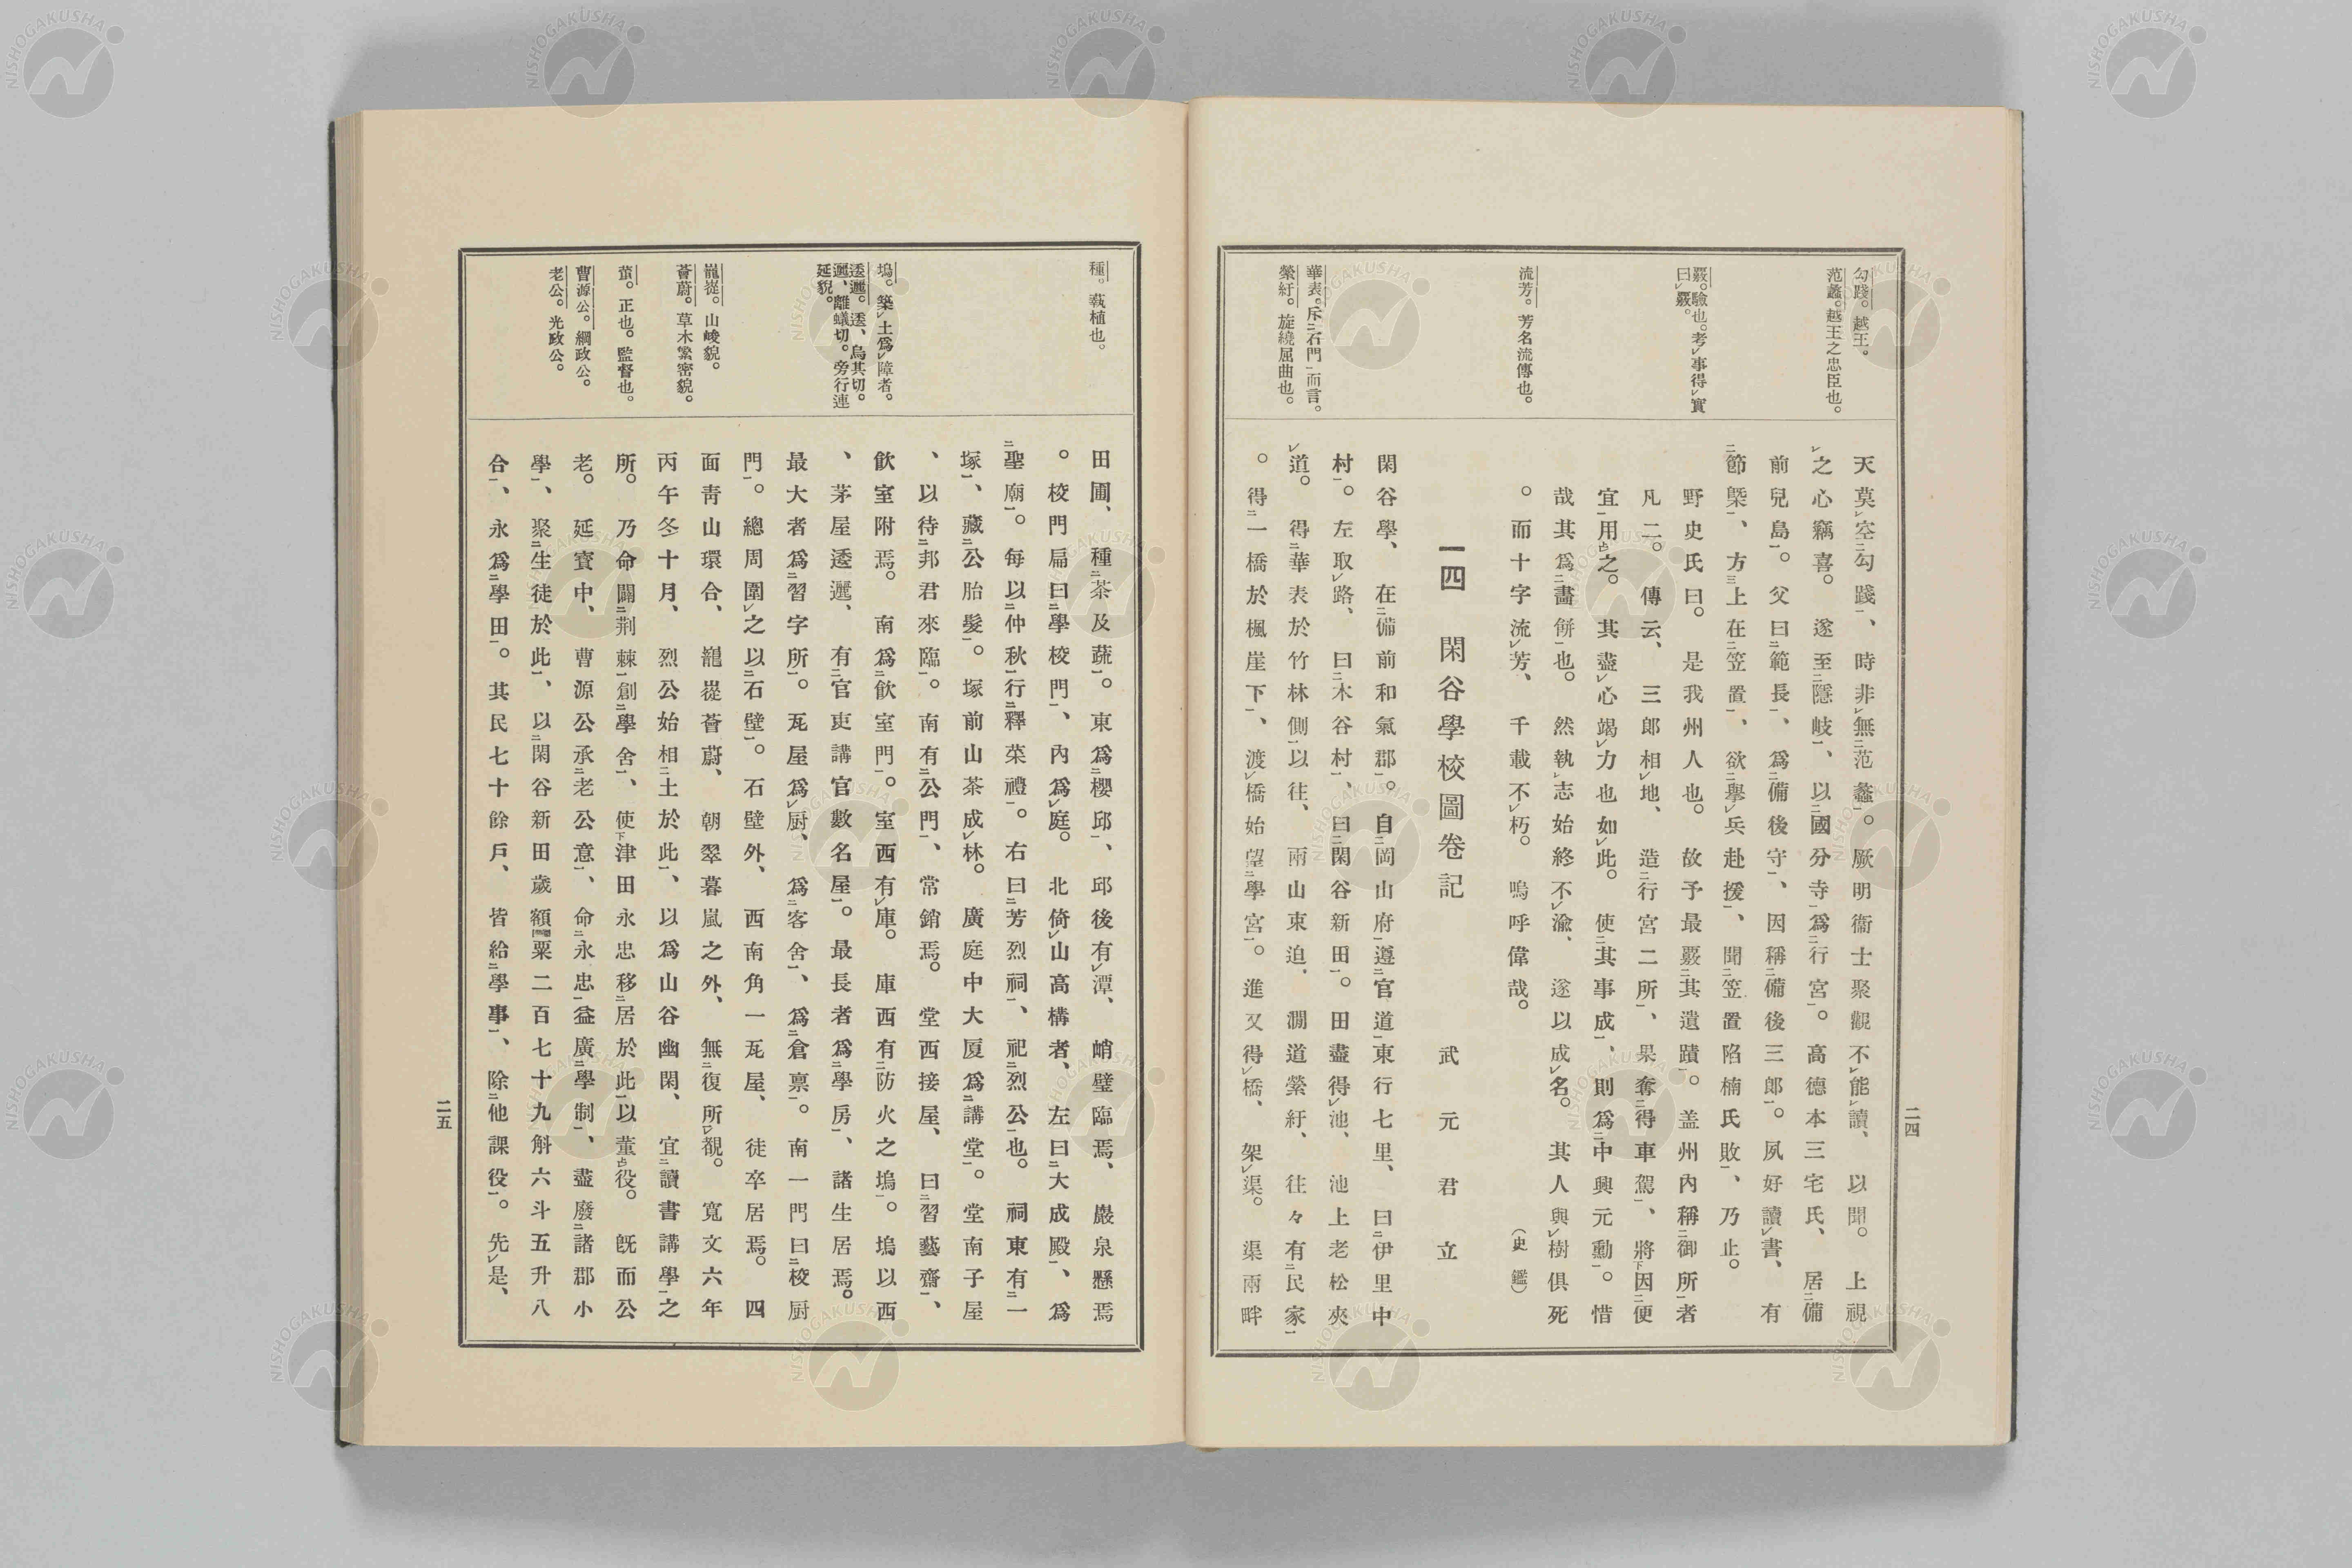 勾踐。越王。
范蠡。越王之忠臣也。
覈。驗也。考㆑事得㆑實
曰㆑覈。
流芳。芳名流傳也。
華表。斥㆓石門㆒而言。
縈紆。旋繞屈曲也。
天莫㆑空㆓勾踐㆒、時非㆑無㆓范蠡㆒。厥明衞士聚觀不㆑能㆑讀、以聞。上視
㆑之心竊喜。遂至㆓隱岐㆒、以㆓國分寺㆒爲㆓行宮㆒。高德本三宅氏、居㆓備
前兒島㆒。父曰㆓範長㆒、爲㆓備後守㆒、因稱㆓備後三郎㆒。夙好讀㆑書、有
㆓節槩㆒、方㆔上在㆓笠置㆒、欲㆓擧㆑兵赴援㆒、聞㆓笠置陷楠氏敗㆒、乃止。
野史氏曰。是我州人也。故予最覈㆓其遺蹟㆒。盖州內稱㆓御所㆒者
凡二。傳云、三郎相㆑地、造㆓行宮二所㆒、果奪㆓得車駕㆒、將㆘因㆓便
宜㆒用㆖之。其盡㆑心竭㆑力也如㆑此。使㆓其事成㆒、則爲㆓中興元勳㆒。惜
哉其爲㆓畫餅㆒也。然執㆑志始終不㆑渝、遂以成㆑名。其人與㆑樹俱死
。而十字流㆑芳、千載不㆑朽。嗚呼偉哉。(史鑑)
一四 閑谷學校圖卷記
武元君立
閑谷學、在㆓備前和氣郡㆒。自㆓岡山府㆒遵㆓官道㆒東行七里、曰㆓伊里中
村㆒。左取㆑路、曰㆓木谷村㆒、曰㆓閑谷新田㆒。田盡得㆑池、池上老松夾
㆑道。得㆓華表於竹林側㆒以往、兩山東迫、澗道縈紆、往々有㆓民家㆒
。得㆓一橋於楓崖下㆒、渡㆑橋始望㆓學宮㆒。進又得㆑橋、架㆑渠。渠兩畔
二四
種。蓺植也。
塢。築㆑土爲㆑障者。
逶邐。逶、烏其切。
邐、離蟻切。旁行連
延貌。
巃嵸。山峻貌。
薈蔚。草木繁密貌。
董。正也。監督也。
曹源公。綱政公。
老公。光政公。
田圃、種㆓茶及蔬㆒。東爲㆓櫻邱㆒、邱後有㆑潭、峭壁臨焉、巖泉懸焉
。校門扁曰㆓學校門㆒、內爲㆑庭。北倚㆑山高構者、左曰㆓大成殿㆒、爲
㆓聖廟㆒。每以㆓仲秋㆒行㆓釋菜禮㆒。右曰㆓芳烈祠㆒、祀㆓烈公㆒也。祠東有㆓一
塚㆒、藏㆓公胎髮㆒。塚前山茶成㆑林。廣庭中大厦爲㆓講堂㆒。堂南子屋
、以待㆓邦君來臨㆒。南有㆓公門㆒、常銷焉。堂西接屋、曰㆓習藝齋㆒、
飮室附焉。南爲㆓飮室門㆒。室西有㆑庫。庫西有㆓防火之塢㆒。塢以西
、茅屋逶邐、有㆓官吏講官數名屋㆒。最長者爲㆓學房㆒、諸生居焉。
最大者爲㆓習字所㆒。瓦屋爲㆑厨、爲㆓客舍㆒、爲㆓倉禀㆒。南一門曰㆓校厨
門㆒。總周圍㆑之以㆓石壁㆒。石壁外、西南角一瓦屋、徒卒居焉。四
面靑山環合、巃嵸薈蔚、朝翠暮嵐之外、無㆓復所㆑覩。寬文六年
丙午冬十月、烈公始相㆓土於此㆒、以爲山谷幽閑、宜㆓讀書講學㆒之
所。乃命闢㆓荆棘㆒創㆓學舍㆒、使㆘津田永忠移㆓居於此㆒以董㆖役。旣而公
老。延寶中、曹源公承㆓老公意㆒、命㆓永忠㆒益廣㆓學制㆒、盡廢㆓諸郡小
學㆒、聚㆓生徒於此㆒、以㆓閑谷新田歲額粟二百七十九斛六斗五升八
合㆒、永爲㆓學田㆒。其民七十餘戶、皆給㆓學事㆒、除㆓他課役㆒。先㆑是、
二五